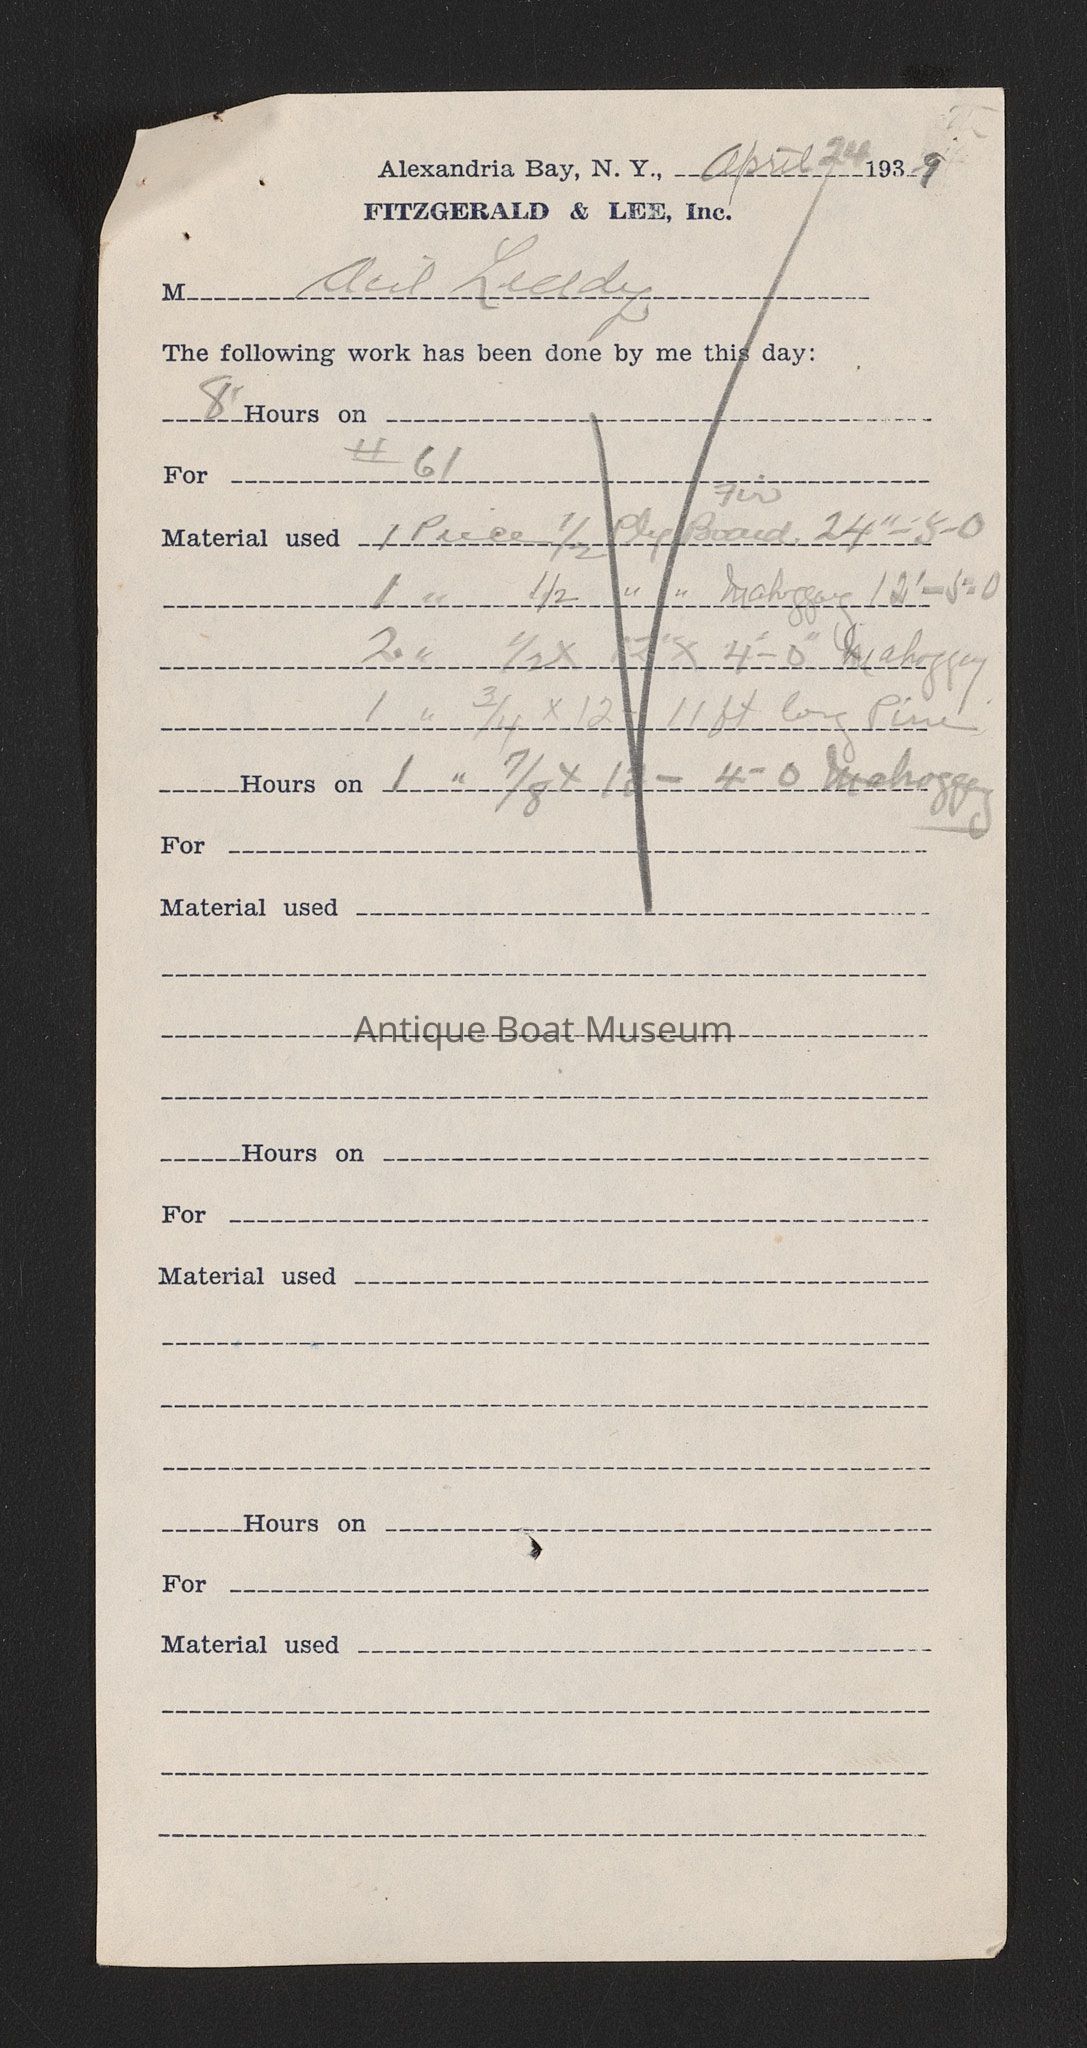 Alexandria Bay, N. Y., April 24 1939
FITZGERALD & LEE, Inc.
M Leddy
The following work has been done by me this day:
8 Hours on
For # 61
Fir
Material used 1 Piece 1/2 Ply Board 24"-5-0
1 " 1/2 " " Mahoggany 12"-5-0
2 " 1/2 x 12" x 4'-0" Mahoggany
1 " 3/4 x 12 - 11 ft long Pine
Hours on 1 " 7/8 x 12 - 4-0 Mahoggany
For
Material used
Antique Boat Museum
Hours on
For
Material used
Hours on
For
Material used